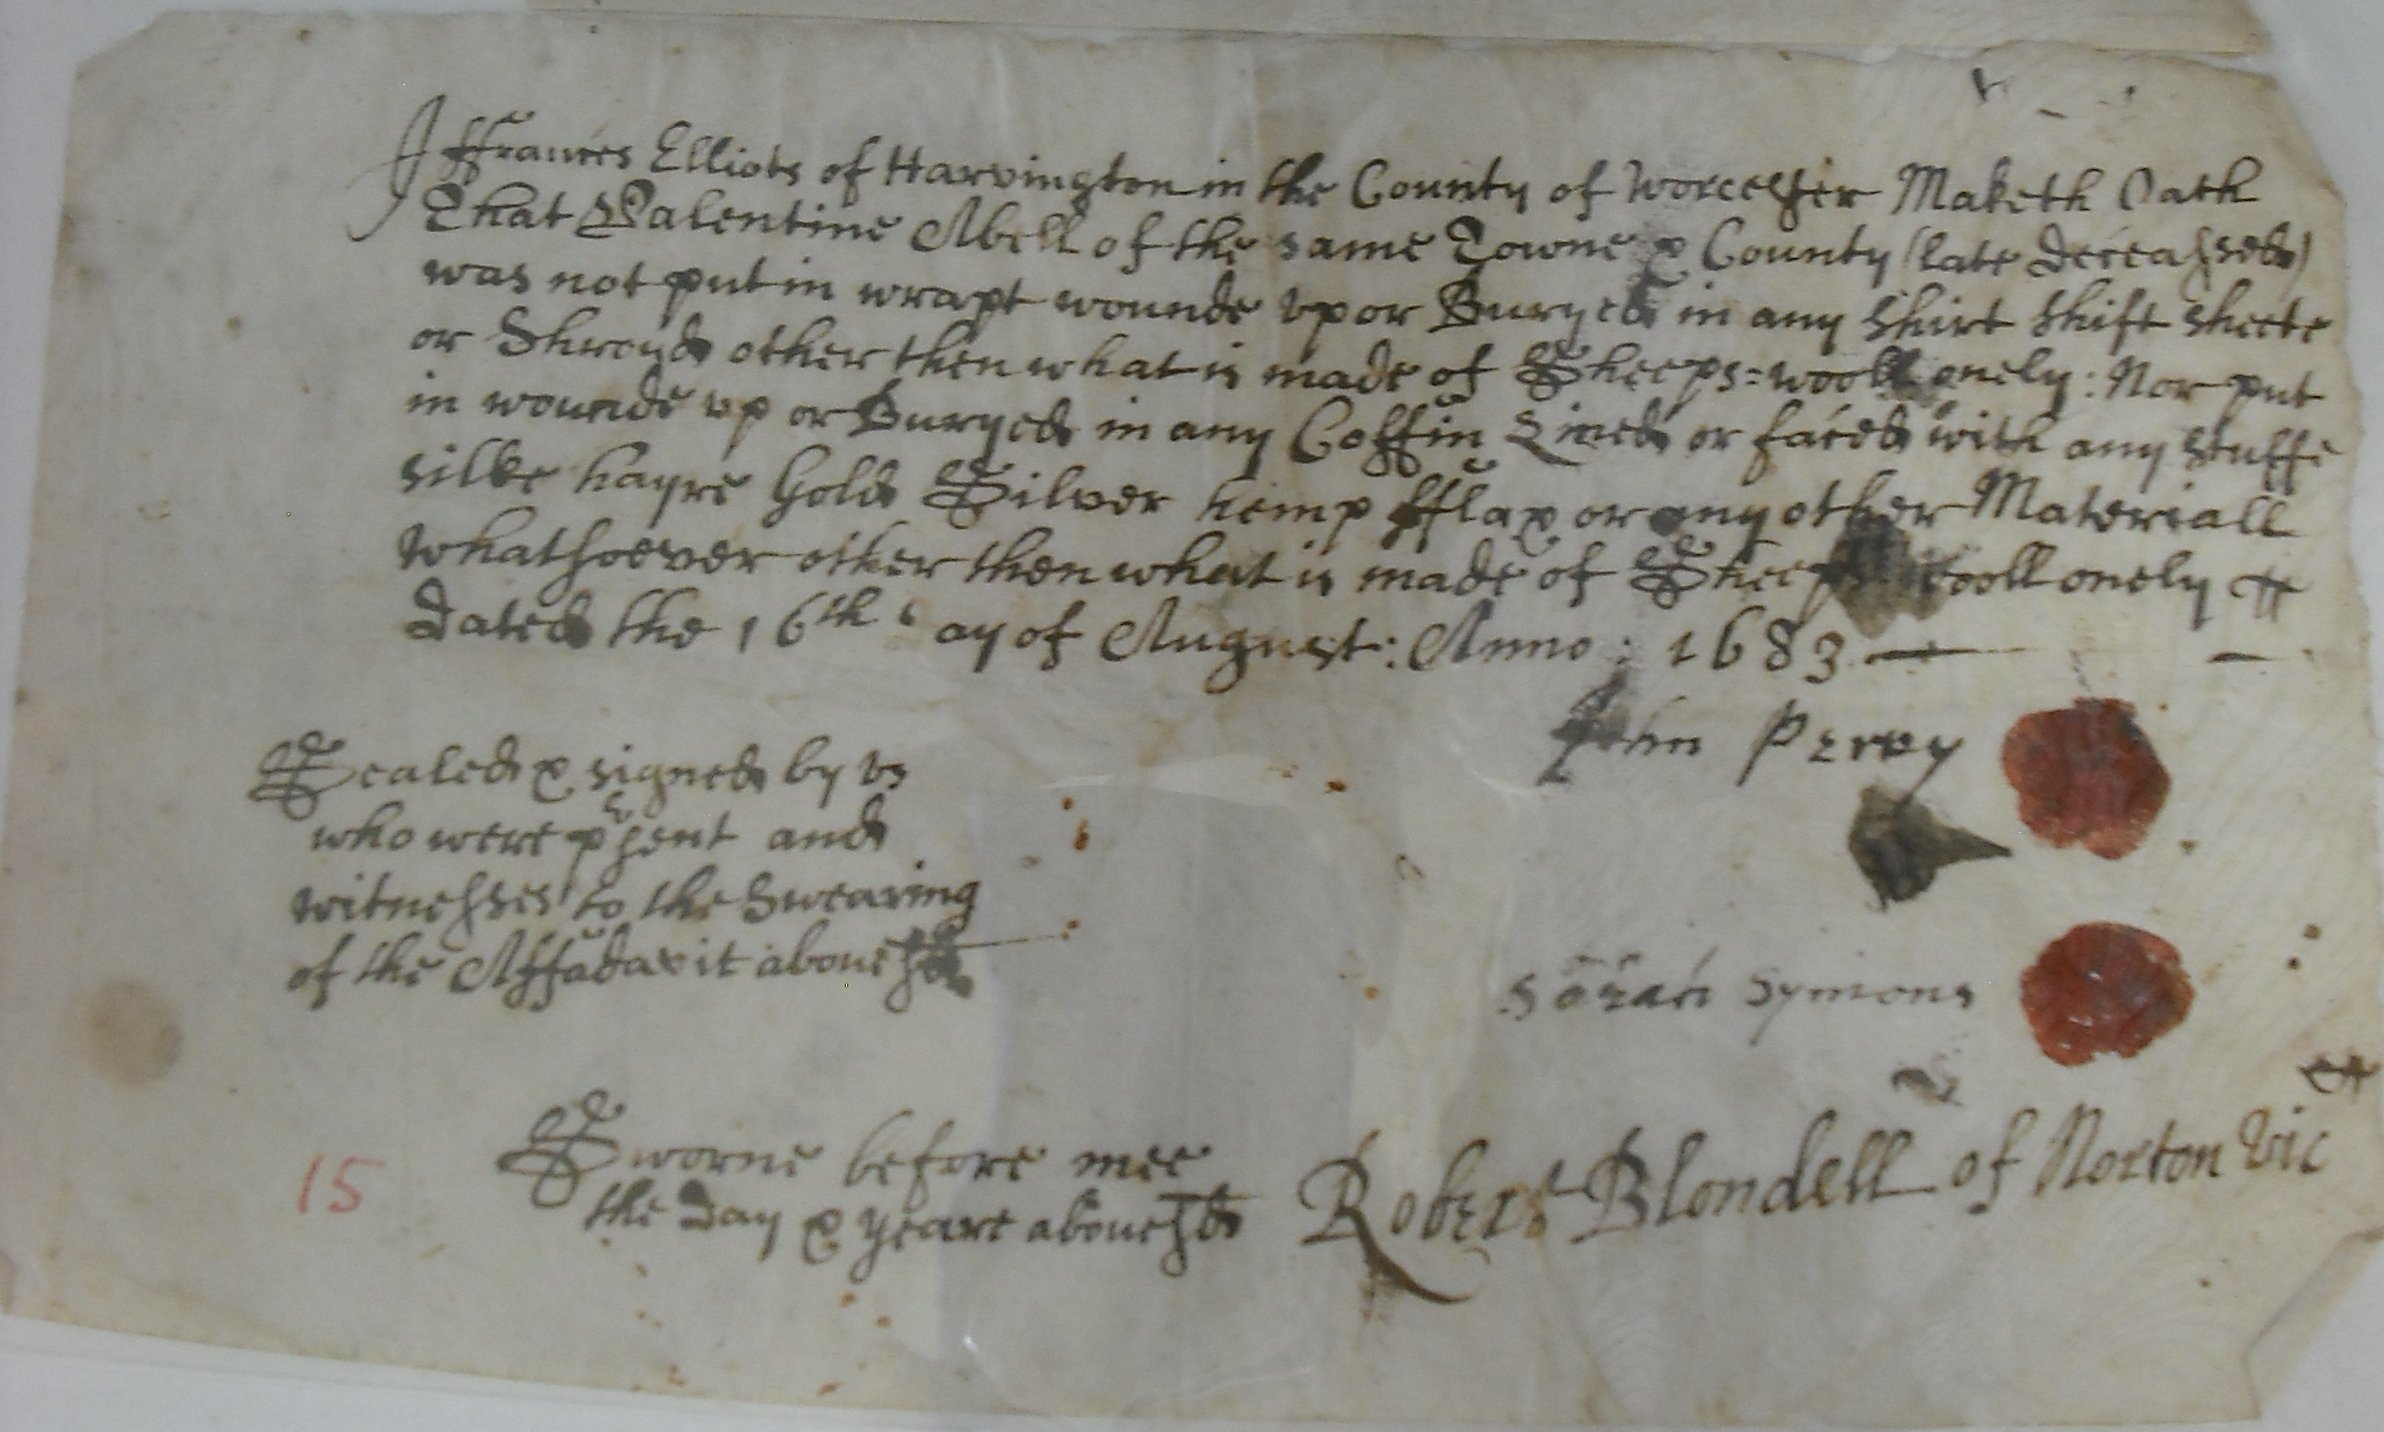 I ffrances Elliots of Harvington in the County of Worcester Maketh Oath
That Valentine Abell of the same Towne & County (late deceassed)
was not put in wrapt wounde vp or Buryed in any shirt shift sheete
or Shroyd other then what is made of Sheeps=wooll onely: Nor put
in wounde vp or Buryed in any Coffin Lined or faced with any stuffe
silke hayre Gold Silver hemp fflax or any other Materiall
Whatsoever other then what is made of Sheeps wooll onely
Dated the 16th day of August: Anno: 1683
John Perry
Sealed & signed by vs
who were psent and
witnesses to the Swearing
of the Affadavit abouesd
Sarah Symons
Sworne before mee
the Day & yeare abouesd
Robert Blondell of Norton Vic
15